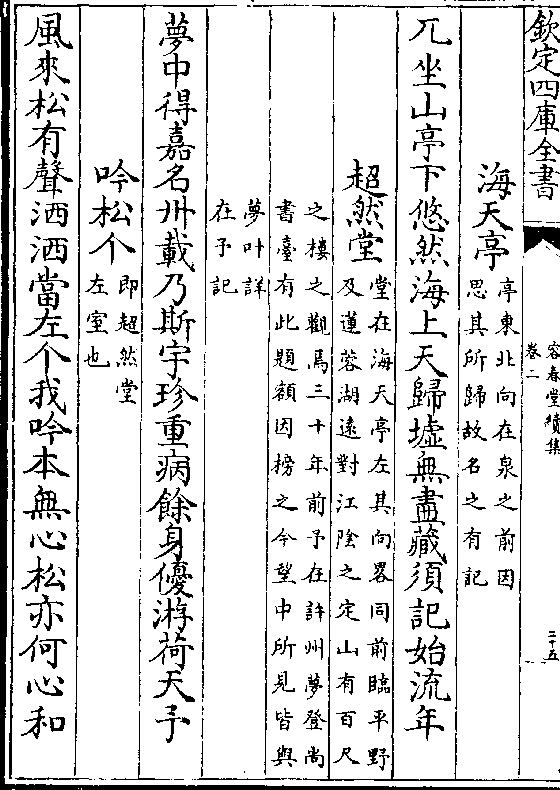 欽定四庫全書
容春堂續集
卷二
二十五
海天亭
亭東北向在泉之前因
思其所歸故名之有記
兀坐山亭下悠然海上天歸墟無盡藏須記始流年
超然堂
堂在海天亭左其向畧同前臨平野
及蓮蓉湖遠對江陰之定山有百尺
之樓之觀焉三十年前予在許州夢登尚
書臺有此題額因榜之今望中所見皆與
夢叶詳
在予記
夢中得嘉名卅載乃斯宇珍重病餘身優游荷天予
吟松个
即超然堂
左室也
風來松有聲洒洒當左个我吟本無心松亦何心和